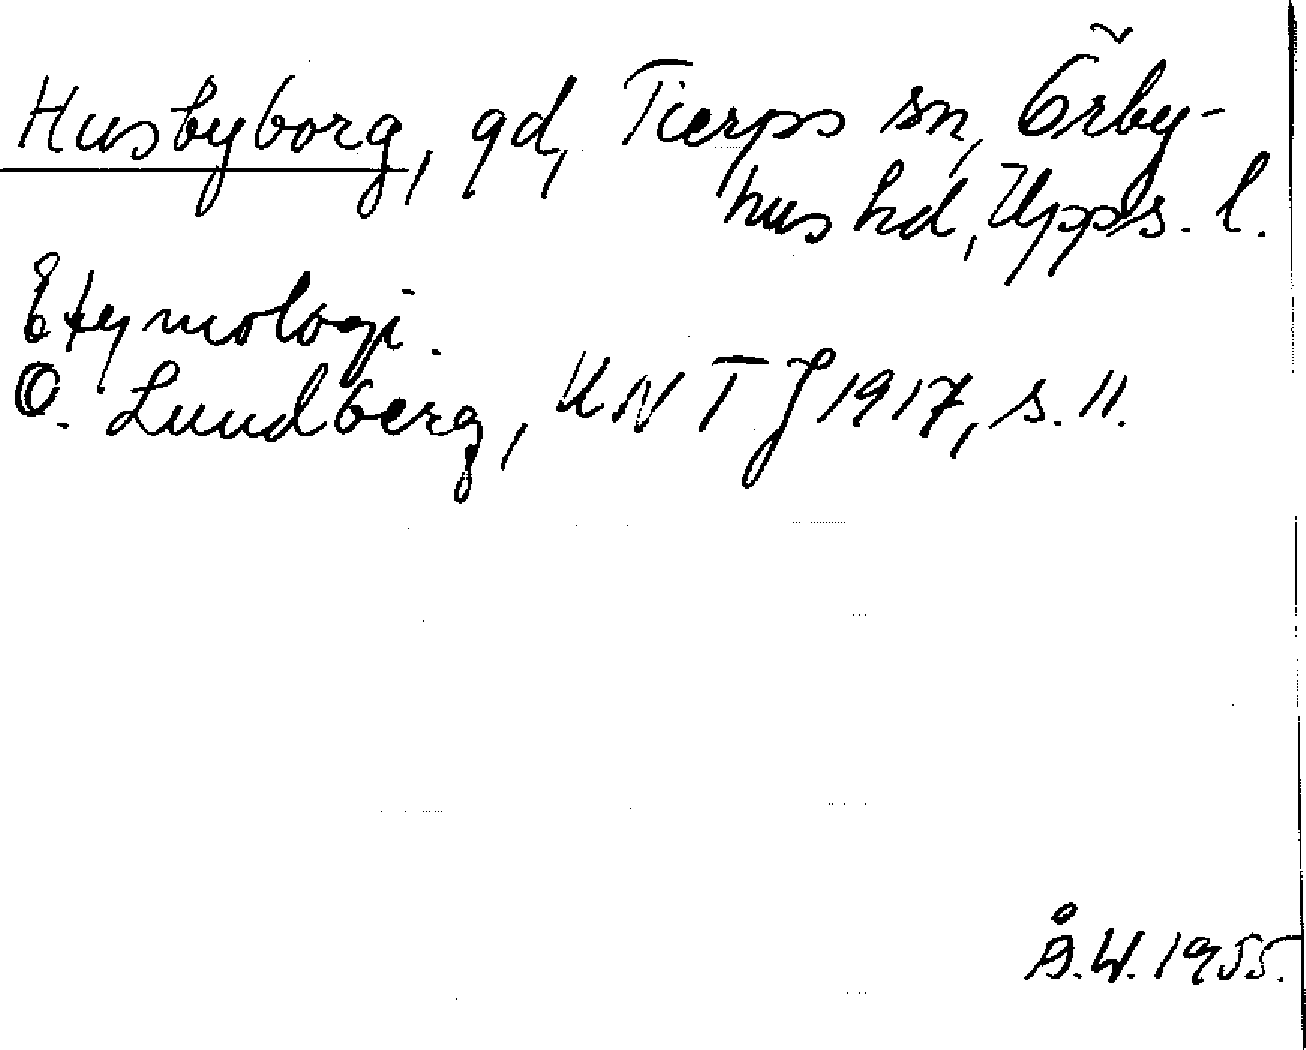 Husbyborg, gd, Tierps sn, Örby-
hus hd, Upps. l.
Etymologi.
O. Lundberg, UNTJ 1917, s. 11.
Å.W. 1955.